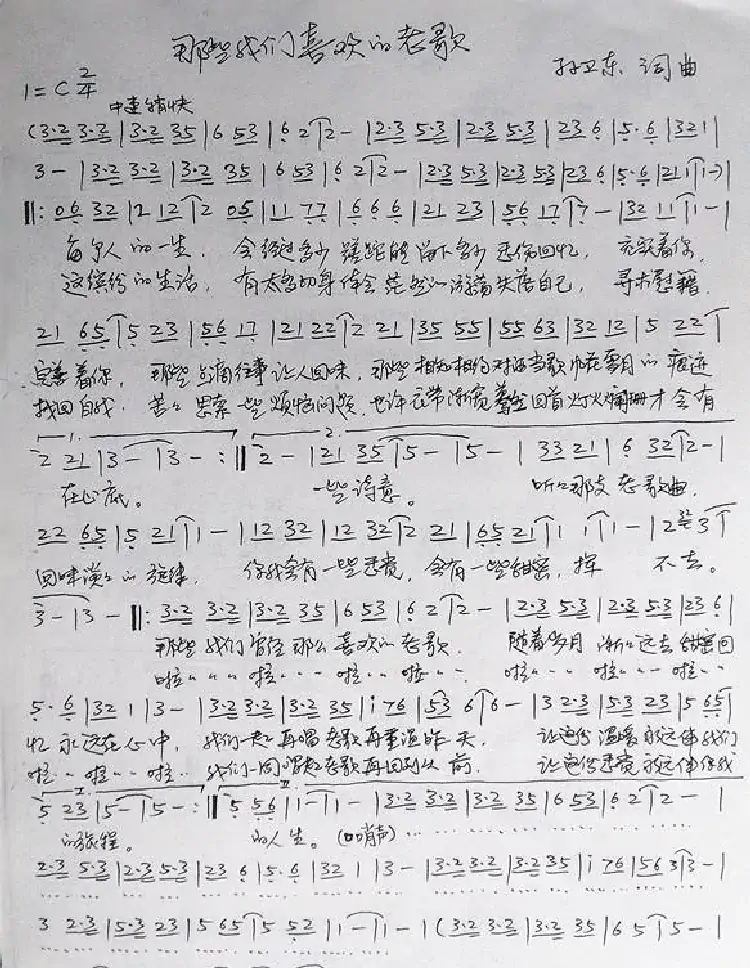 那些我们喜欢的老歌
孙卫东 词曲
1=C 2/4
中速稍快
(3·2 3·2|3·2 35|6 53|6 2|2-|2·3 5·3|2·3 5·3|23 6|5·6|321|
3-|3·2 3·2|3·2 35|6 53|6 2|2-|2·3 5·3|2·3 53|23 6|5·6|21 1|1-)|
‖: 06 32|2 12|2 05|11 77|6 6 6|21 23|56 17|7-|32 11|1-|
每个人的一生, 会经过多少 留下多少 悲伤回忆, 充实着你,
这缤纷的生活, 有太多切身体会 茫然 失落自己, 寻求慰籍,
21 65|5 23|56 17|21 22|2 21|35 55|55 63|32 12|5 22|
完善着你, 那些 往事让人回味, 那些相知相约对酒当歌 雪月的痕迹
找回自我. 苦苦思索一些烦恼问题, 也许衣带渐宽 蓦然回首灯火阑珊才会有
1. 2.
2 21|3-|3-:‖2-|21 35|5-|5-|33 21|6 32|2-|
在心底。 一些诗意。 听听那支老歌曲,
22 65|5 21|1-|12 32|12 32|2 21|65 21|1 1|1-|2 32 3|
回味淡淡的旋律, 你我会有一些悲哀, 会有一些甜蜜, 挥 不去。
3-|3-‖: 3·2 3·2|3·2 35|6 53|6 2|2-|2·3 5·3|2·3 5·3|23 6|
那些我们曾经那么喜欢的老歌. 随着岁月渐渐远去 甜蜜回
啦 啦 啦 啦 啦 啦 啦
5·6|32 1|3-|3·2 3·2|3·2 35|i 76|53 6|6-|3 2·3|5·3 23|5 65|
忆永远在心中, 我们一起再唱老歌再重温昨天, 让这份温暖永远伴我们
啦 啦 啦 我们一同唱起老歌再回到从前, 让这份 永远伴你我
5 23|5-|5-:‖5 56|1-|1-|3·2 3·2|3·2 35|6 53|6 2|2-|
的旅程。 的人生。(口哨声)
2·3 5·3|2·3 5·3|23 6|5·6|32 1|3-|3·2 3·2|3·2 35|i 76|56 3|3-|
3 2·3|5·3 23|5 65|5 52|1-|1-|(3·2 3·2|3·2 35|6 5|5-|